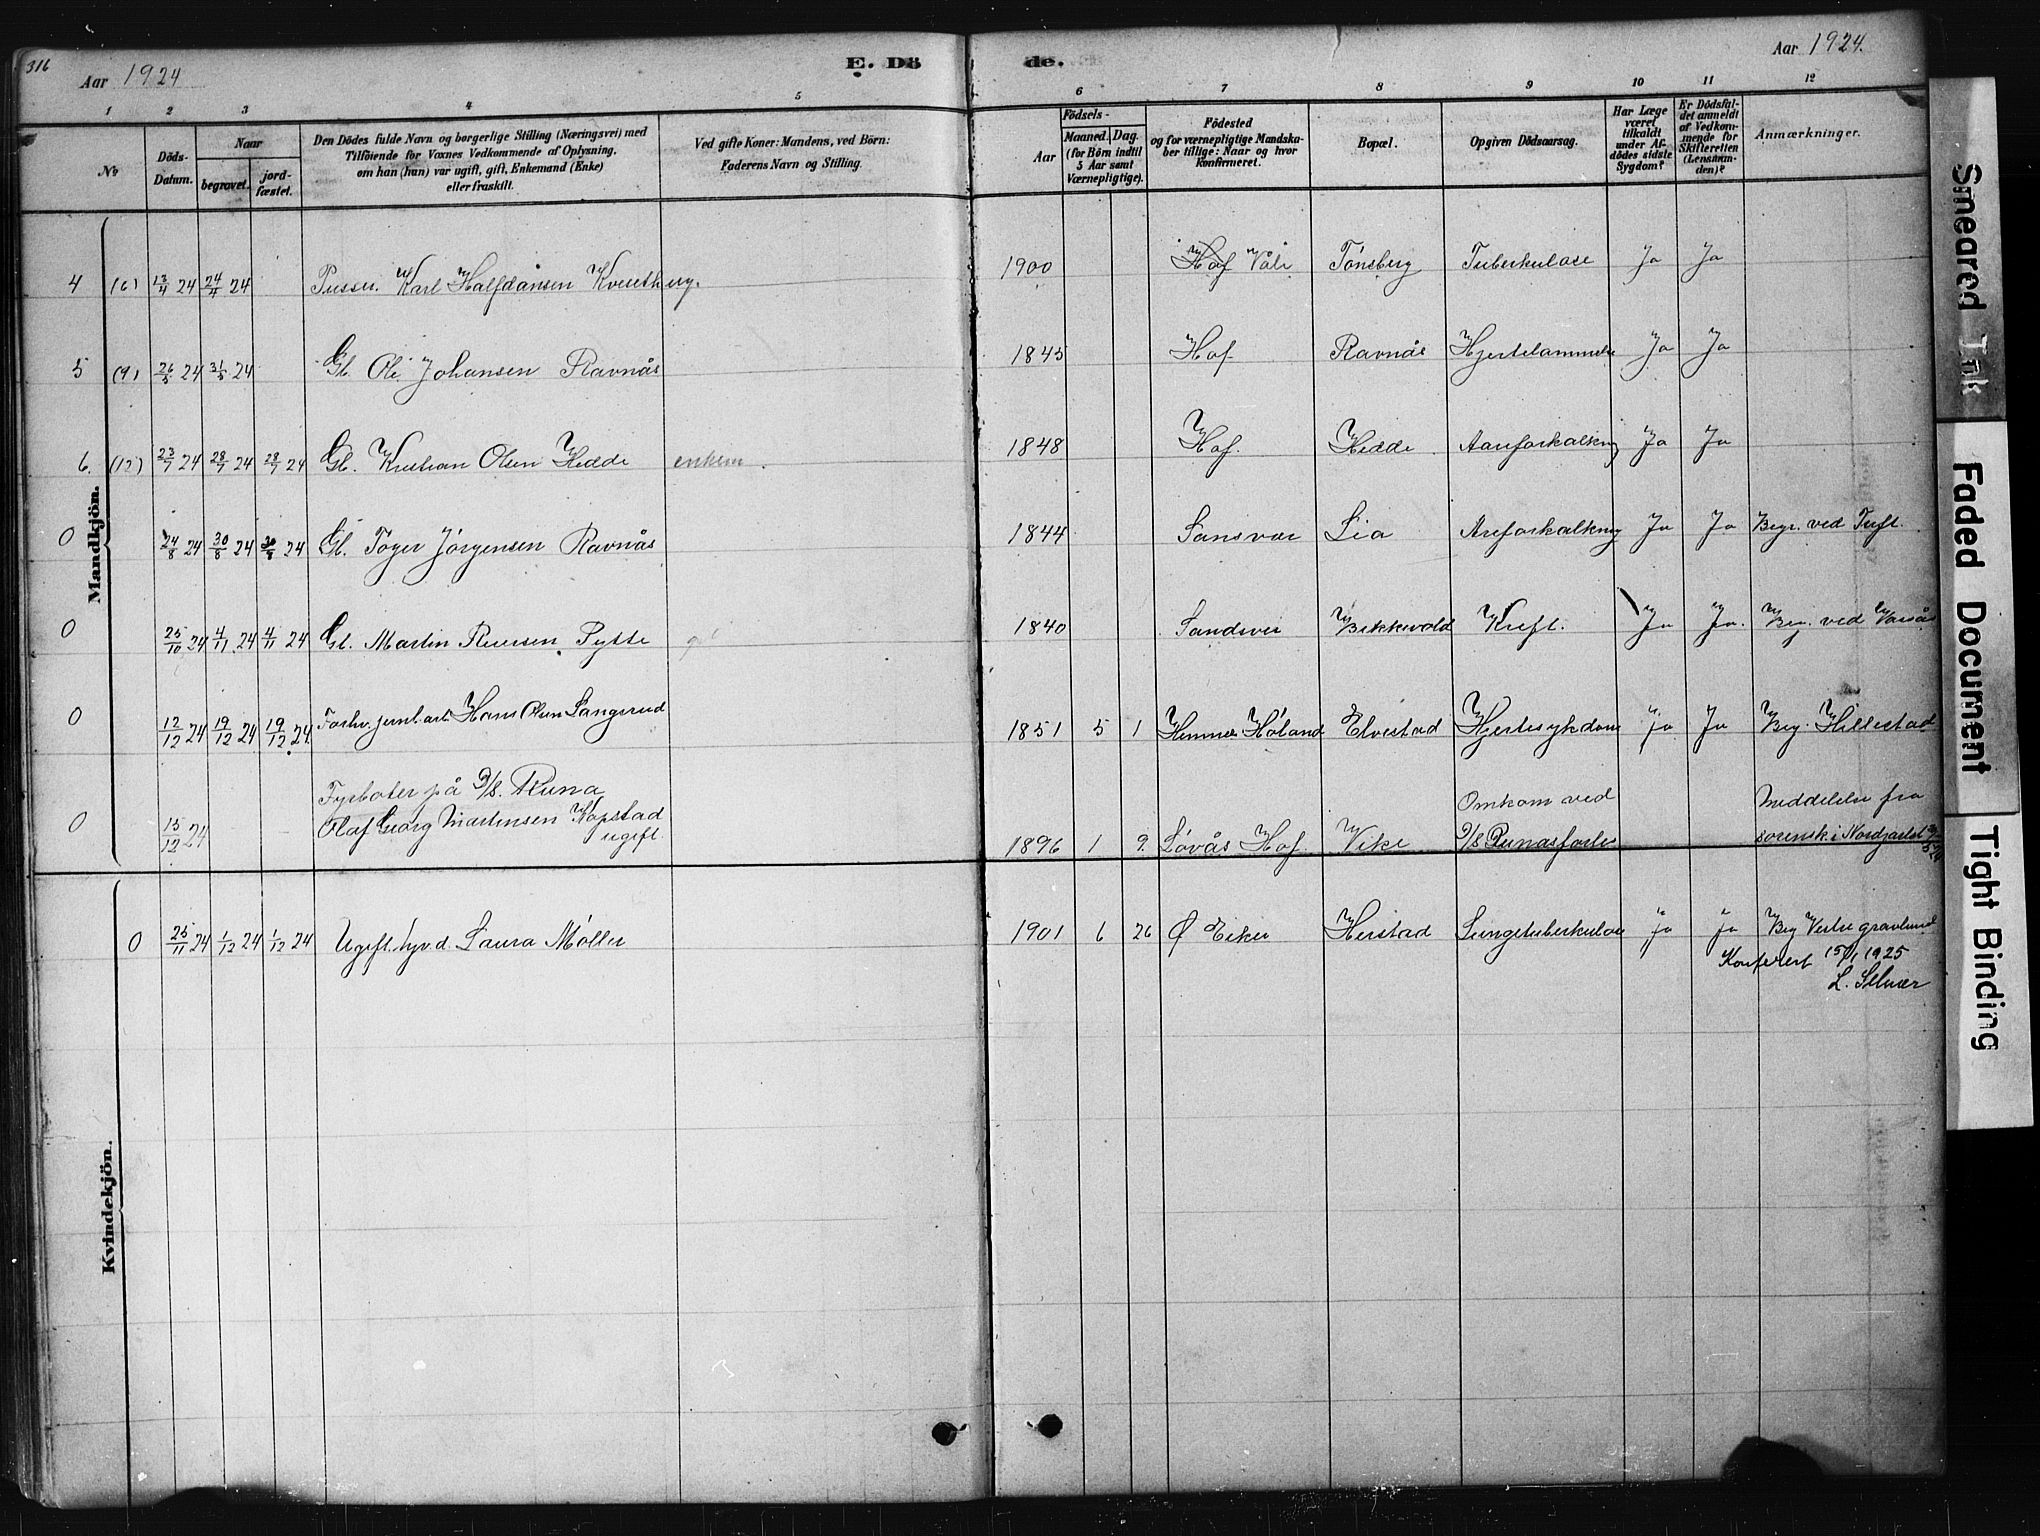 316
Aar 1924
E. Dö
de.
Aar 1924.
1 2 3 4 5 6 7 8 9 10 11 12
No
Döds-
Datum.
Naar
begravet.
jord-
fæstet.
Den Dödes fulde Navn og borgerlige Stilling (Næringsvei) med
Tilföiende for Voxnes Vedkommende af Oplysning,
om han (hun) var ugift, gift, Enkemand (Enke)
eller fraskilt.
Ved gifte Koner: Mandens, ved Börn:
Faderens Navn og Stilling.
Aar
Födsels-
Maaned. Dag.
(for Börn indtil
5 Aar samt
Værnepligtige).
Födested
og for værnepligtige Mandska-
ber tillige: Naar og hvor
konfirmeret.
Bopæl.
Opgiven Dödsaarsag.
Har Læge
været
tilkaldt
under Af-
dödes sidste
Sygdom?
Er Dödsfal-
det anmeldt
af Vedkom-
mende for
Skifteretten
(Lensman-
den)?
Anmærkninger.
Mandkjön.
4 (6) 13/4 24 24/4 24 Pusser. Karl Halfdansen 1900 Hof Våle Tönsberg Tuberkulose Ja Ja
5 (9) 26/5 24 31/5 24 Gb. Ole Johansen Ravnås 1845 Hof Ravnås Hjertelammelse Ja Ja
6. (12) 23/7 24 28/7 24 28/7 24 Gb. Kristian Olsen Hedde enkem. 1848 Hof. Hedde Aareforkalkning Ja Ja
0 24/8 24 30/8 24 30/8 24 Gl. Töger Jörgensen Ravnås 1844 Sansvær Lia Areforkalkning Ja Ja Begr. ved Tuft.
0 25/10 24 4/11 24 4/11 24 Gb. Martin Pytte 1840 Bekkevold Kreft. Ja Ja. Beg. ved Vassås
0 12/12 24 19/12 24 19/12 24 Forhv. jernb.arb. Hans Olsen Langerud 1851 5 1 Hemnes Höland Elvestad Hjertesykdom Ja Ja Beg. Hillestad
Fyrböter på D/S. Runa
0 15/12 24 Olaf Georg Martinsen Kopstad
ugift.
1896 1 9 Lövås Hof. Vike
Omkom ved
D/S Runasforlis
Meddelelse fra
sorensk. i Nordjarlsb.
Kvindekjön.
0 25/11 24 1/12 24 1/12 24 Ugift. hyrd. Laura Möller 1901 6 26 Ø Eiker Herstad Lungetuberkulose ja ja Beg Vestre gravlund
Konferert 15/1 1925
L. Selmer
Smeared Ink
Faded Document
Tight Binding